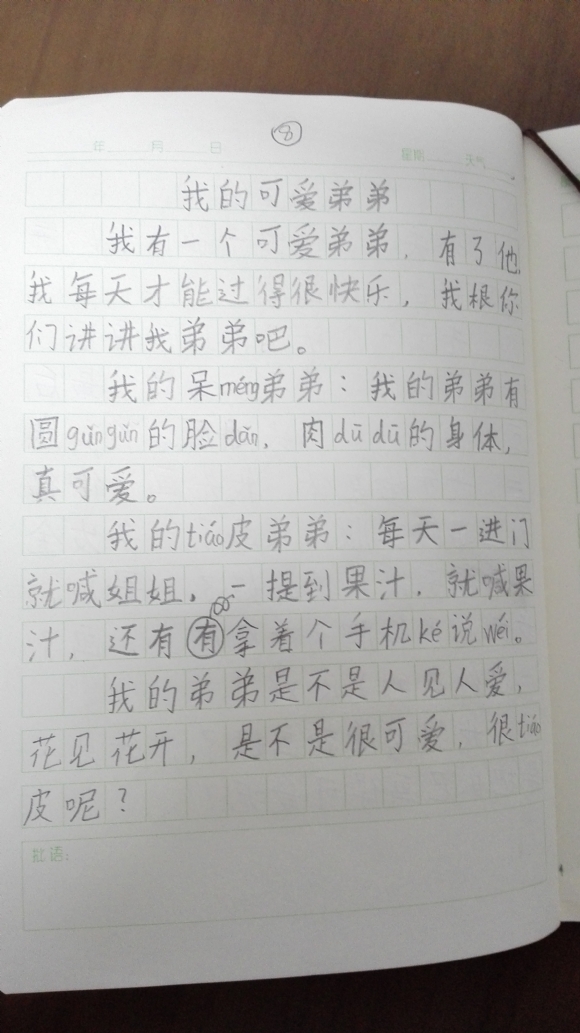 ⑧
年 月 日 星期 天气
我的可爱弟弟
我有一个可爱弟弟，有了他，
我每天才能过得很快乐，我根你
们讲讲我弟弟吧。
我的呆méng弟弟：我的弟弟有
圆gǔngǔn的脸dǎn，肉dūdū的身体，
真可爱。
我的tiáo皮弟弟：每天一进门
就喊姐姐。一提到果汁，就喊果
汁，还有有拿着个手机ké说wéi。
我的弟弟是不是人见人爱，
花见花开，是不是很可爱，很tiáo
皮呢？
批语：